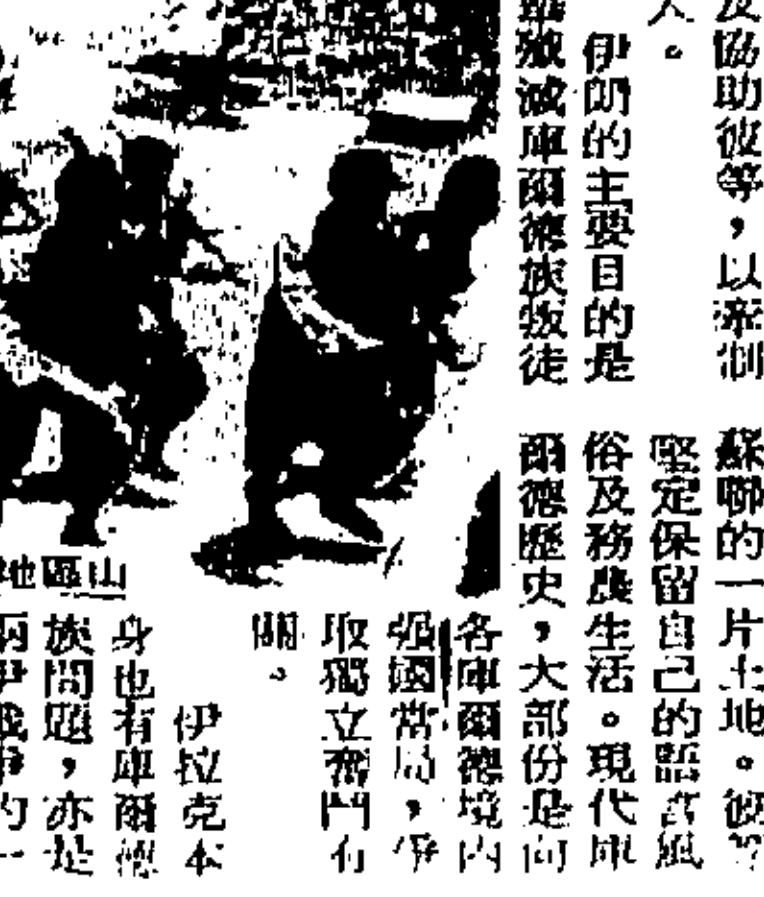 及協助彼等，以牽制
人。
伊朗的主要目的是
殲滅庫爾德族叛徒
蘇聯的一片土地。彼等
堅定保留自己的語言風
俗及務農生活。現代庫
爾德歷史，大部份是向
各庫爾德境內
強國當局，爭
取獨立奮鬥有
關。
伊拉克本
身也有庫爾德
族問題，亦是
兩伊戰爭的一
山區地